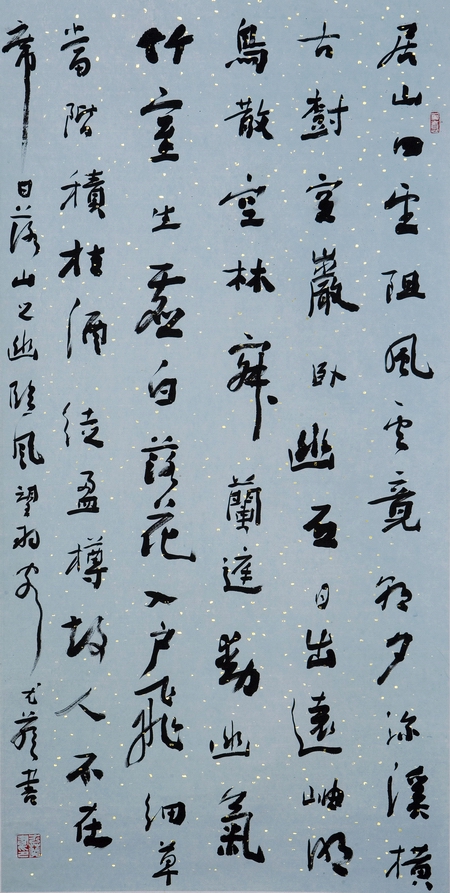 居山四望阻風云竟朝夕深溪橫
古樹空巖臥幽石日出遠岫明
鳥散空林寂蘭庭動幽氣
竹室生虛白落花入戶飛細草
當階積桂酒徒盈樽故人不在
席日落山之幽臨風望羽客 書